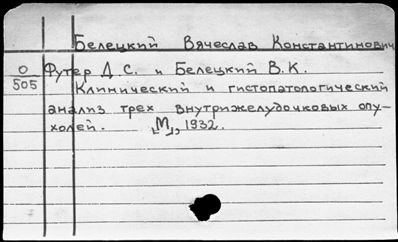 Белецкий Вячеслав Константинович
О Футер Д.С. и Белецкий В.К.
505 Клинический и гистопатологический
анализ трех внутрижелудочковых опу-
холей. [М], 1932.